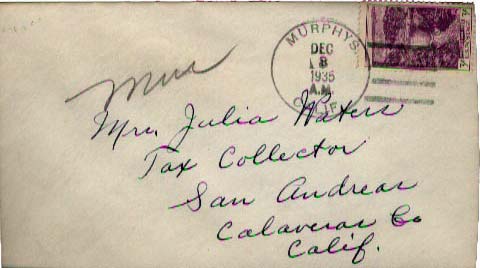 MURPHYS
DEC
8
1935
A.M.
CALIF.
Mrs. Julia Waters
Tax Collector
San Andreas
Calaveras Co
Calif.